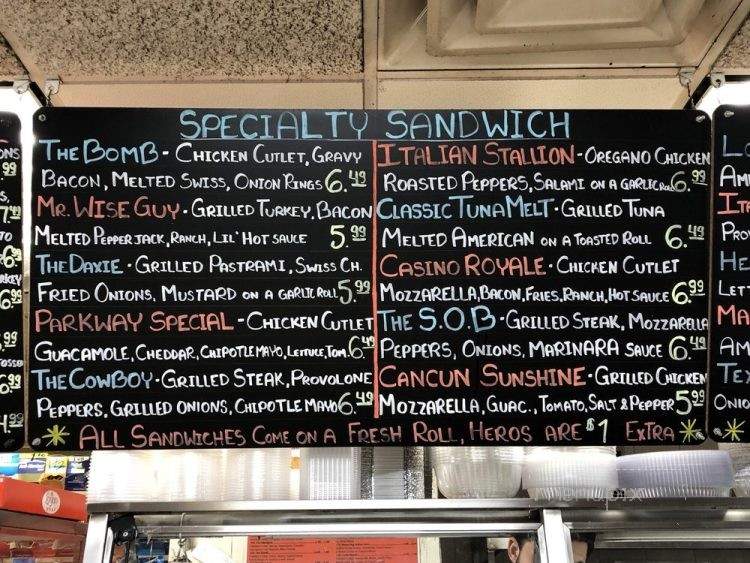 SPECIALTY SANDWICH
THE BOMB - CHICKEN CUTLET, GRAVY
BACON, MELTED SWISS, ONION RINGS 6.49
MR. WISE GUY - GRILLED TURKEY, BACON
MELTED PEPPER JACK, RANCH, LIL' HOT SAUCE 5.99
THE DAXIE - GRILLED PASTRAMI, SWISS CH.
FRIED ONIONS, MUSTARD ON A GARLIC ROLL 5.99
PARKWAY SPECIAL - CHICKEN CUTLET
GUACAMOLE, CHEDDAR, CHIPOTLE MAYO, LETTUCE, TOM. 6.49
THE COWBOY - GRILLED STEAK, PROVOLONE
PEPPERS, GRILLED ONIONS, CHIPOTLE MAYO 6.49
ITALIAN STALLION - OREGANO CHICKEN
ROASTED PEPPERS, SALAMI ON A GARLIC ROLL 6.99
CLASSIC TUNA MELT - GRILLED TUNA
MELTED AMERICAN ON A TOASTED ROLL 6.49
CASINO ROYALE - CHICKEN CUTLET
MOZZARELLA, BACON, FRIES, RANCH, HOT SAUCE 6.99
THE S.O.B - GRILLED STEAK, MOZZARELLA
PEPPERS, ONIONS, MARINARA SAUCE 6.49
CANCUN SUNSHINE - GRILLED CHICKEN
MOZZARELLA, GUAC., TOMATO, SALT & PEPPER 5.99
ALL SANDWICHES COME ON A FRESH ROLL, HEROS ARE $1 EXTRA